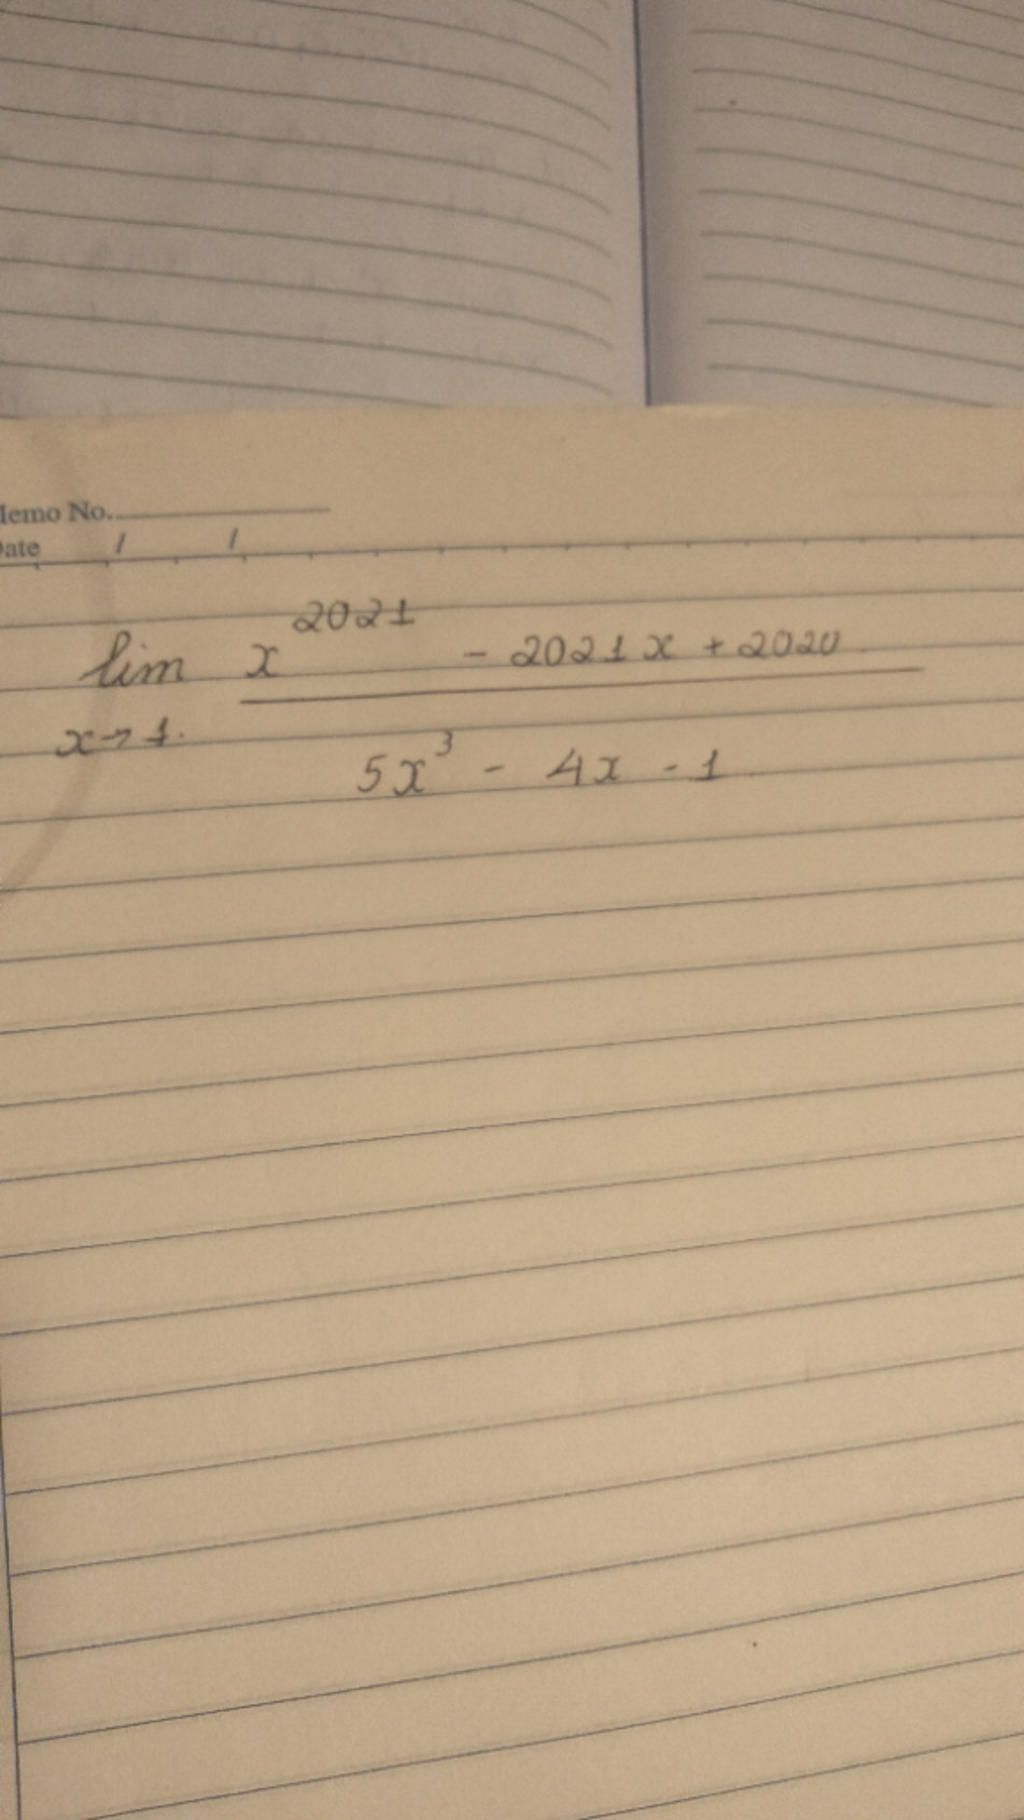 Memo No.
Date / /
lim x^2021 - 2021x + 2020
x→1. 5x^3 - 4x - 1